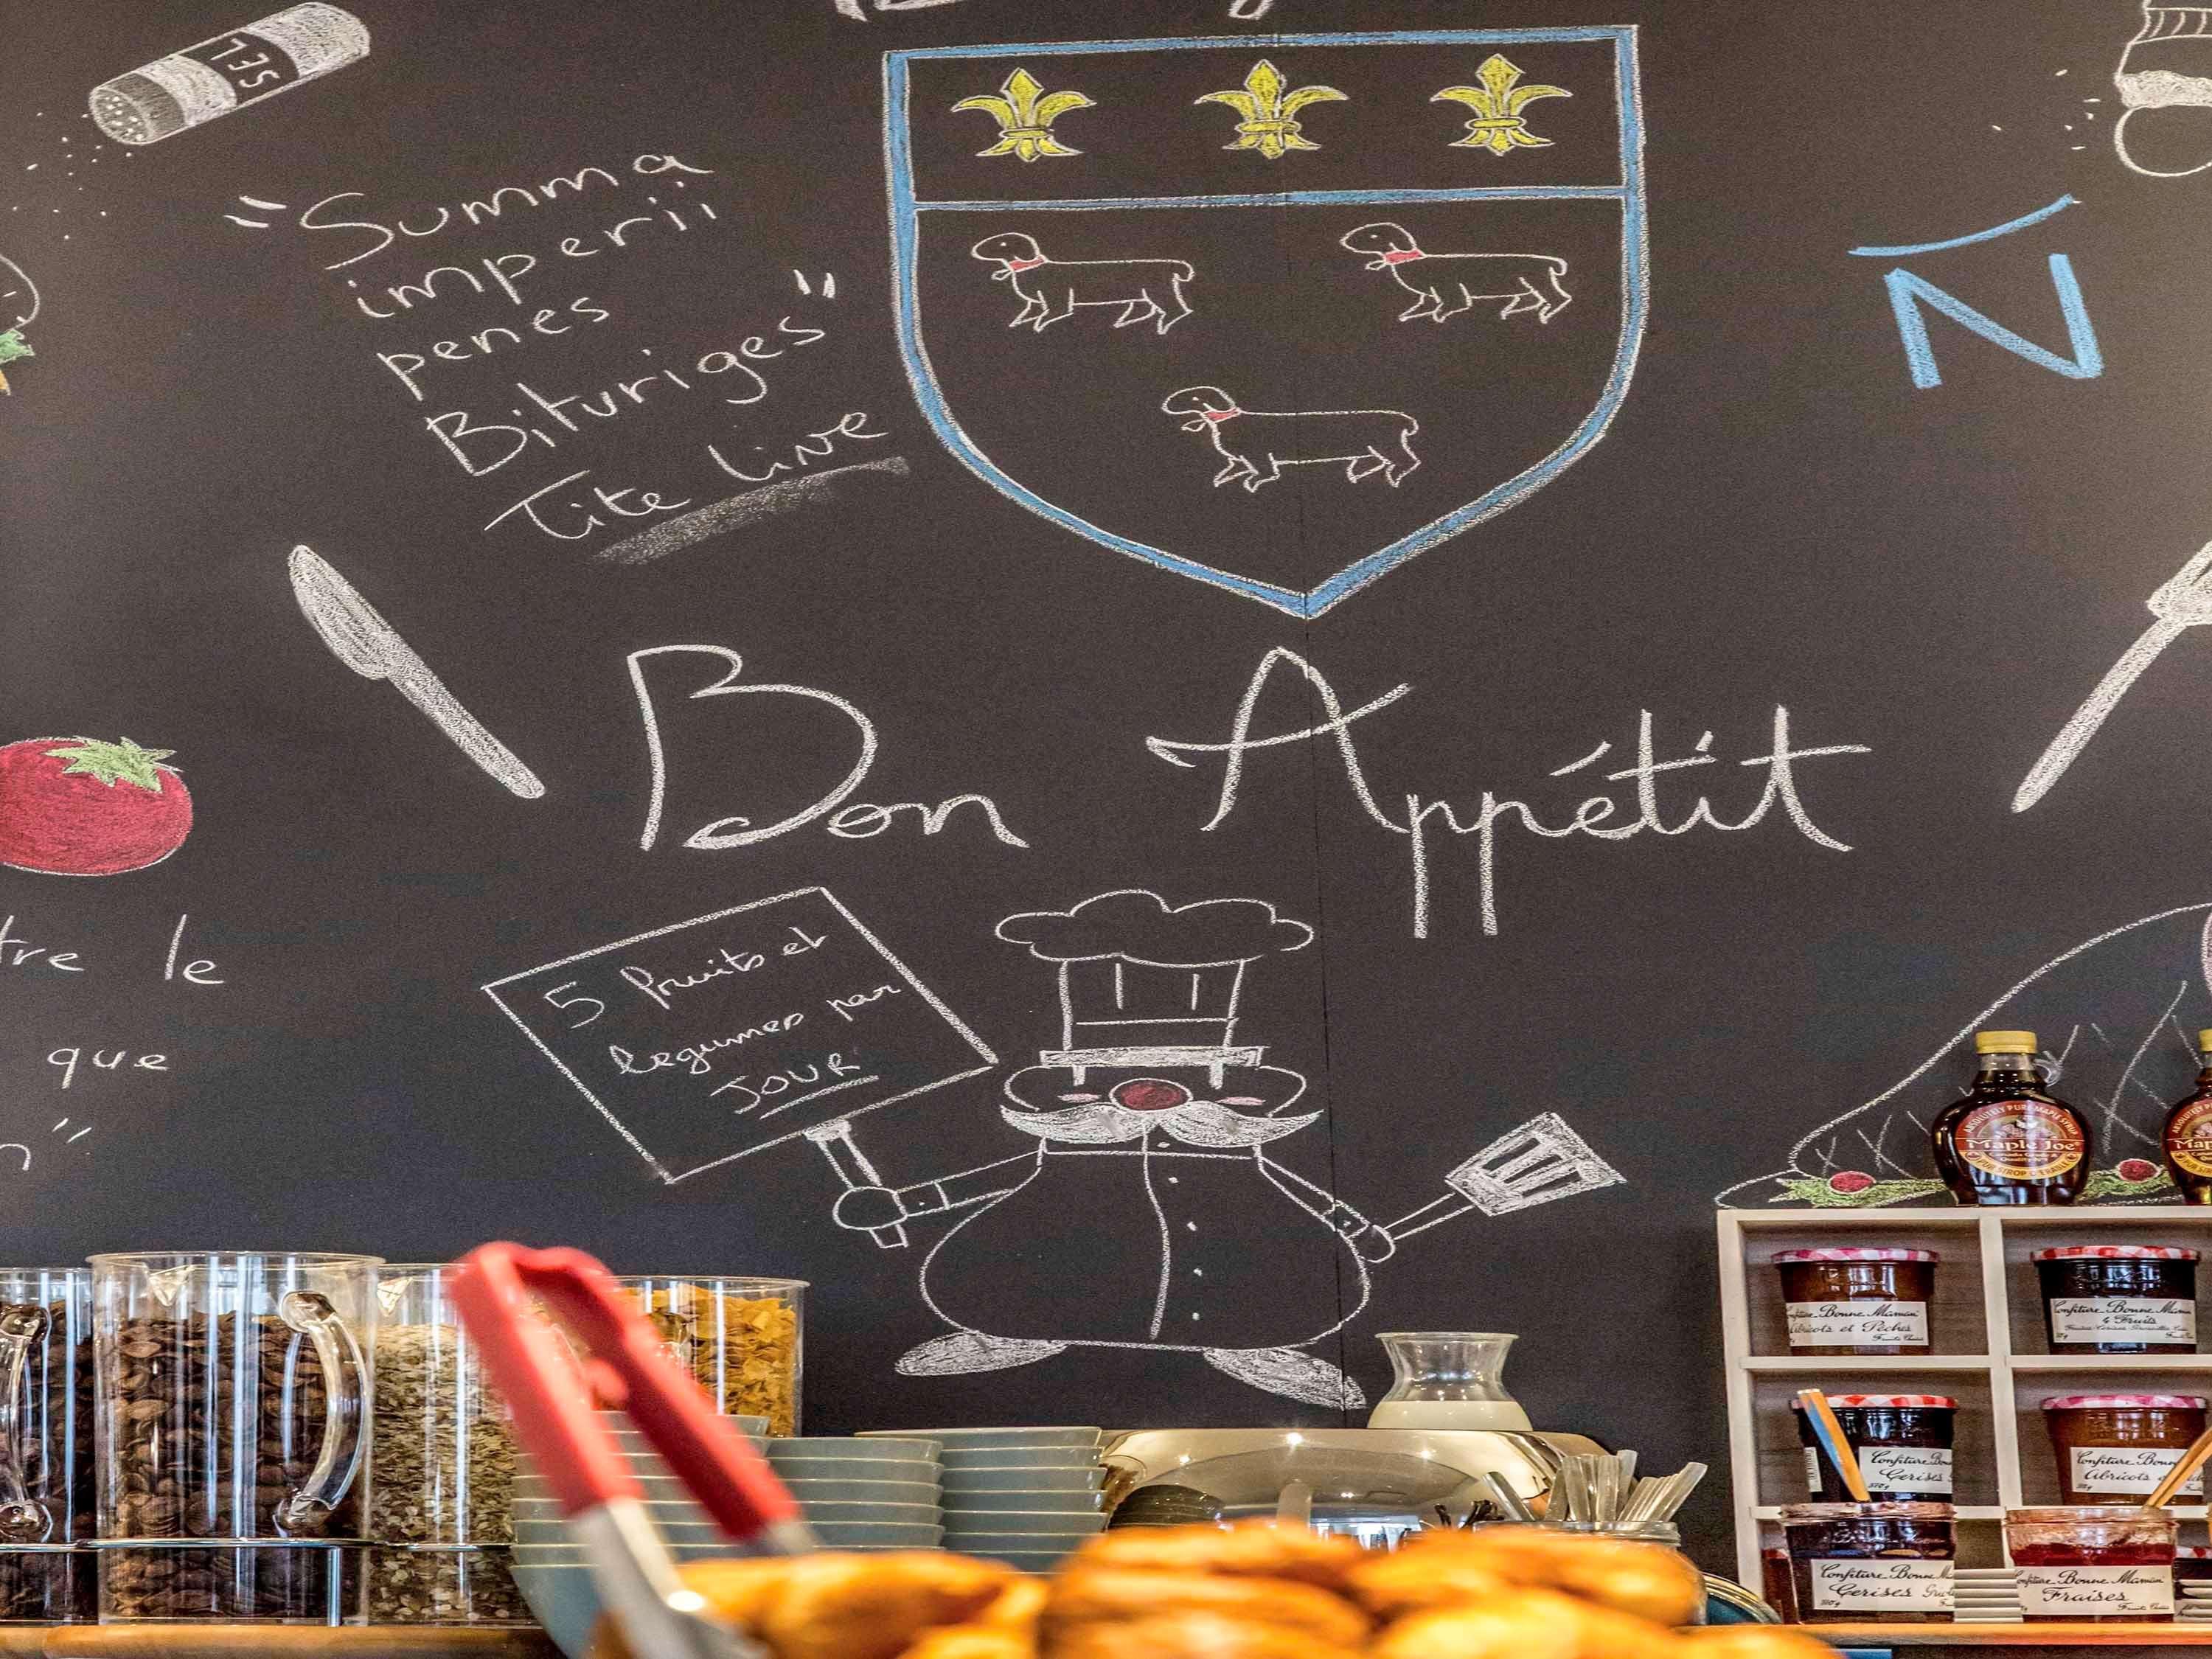 SEL
"Summa
imperii
penes
Bituriges"
Tite Live
N
Bon Appétit
tre le
que
5 fruits et
legumes par
JOUR
ABSOLUTELY PURE MAPLE SYRUP
Maple Joe
PUR SIROP D'ÉRABLE
Confiture Bonne Maman
Abricots et Pêches
Fruits Choisis
Confiture Bonne Maman
4 Fruits
Confiture Bonne
Cerises
370 g
Confiture Bonne
Abricots
Confiture Bonne M
Cerises
Confiture Bonne Maman
Fraises